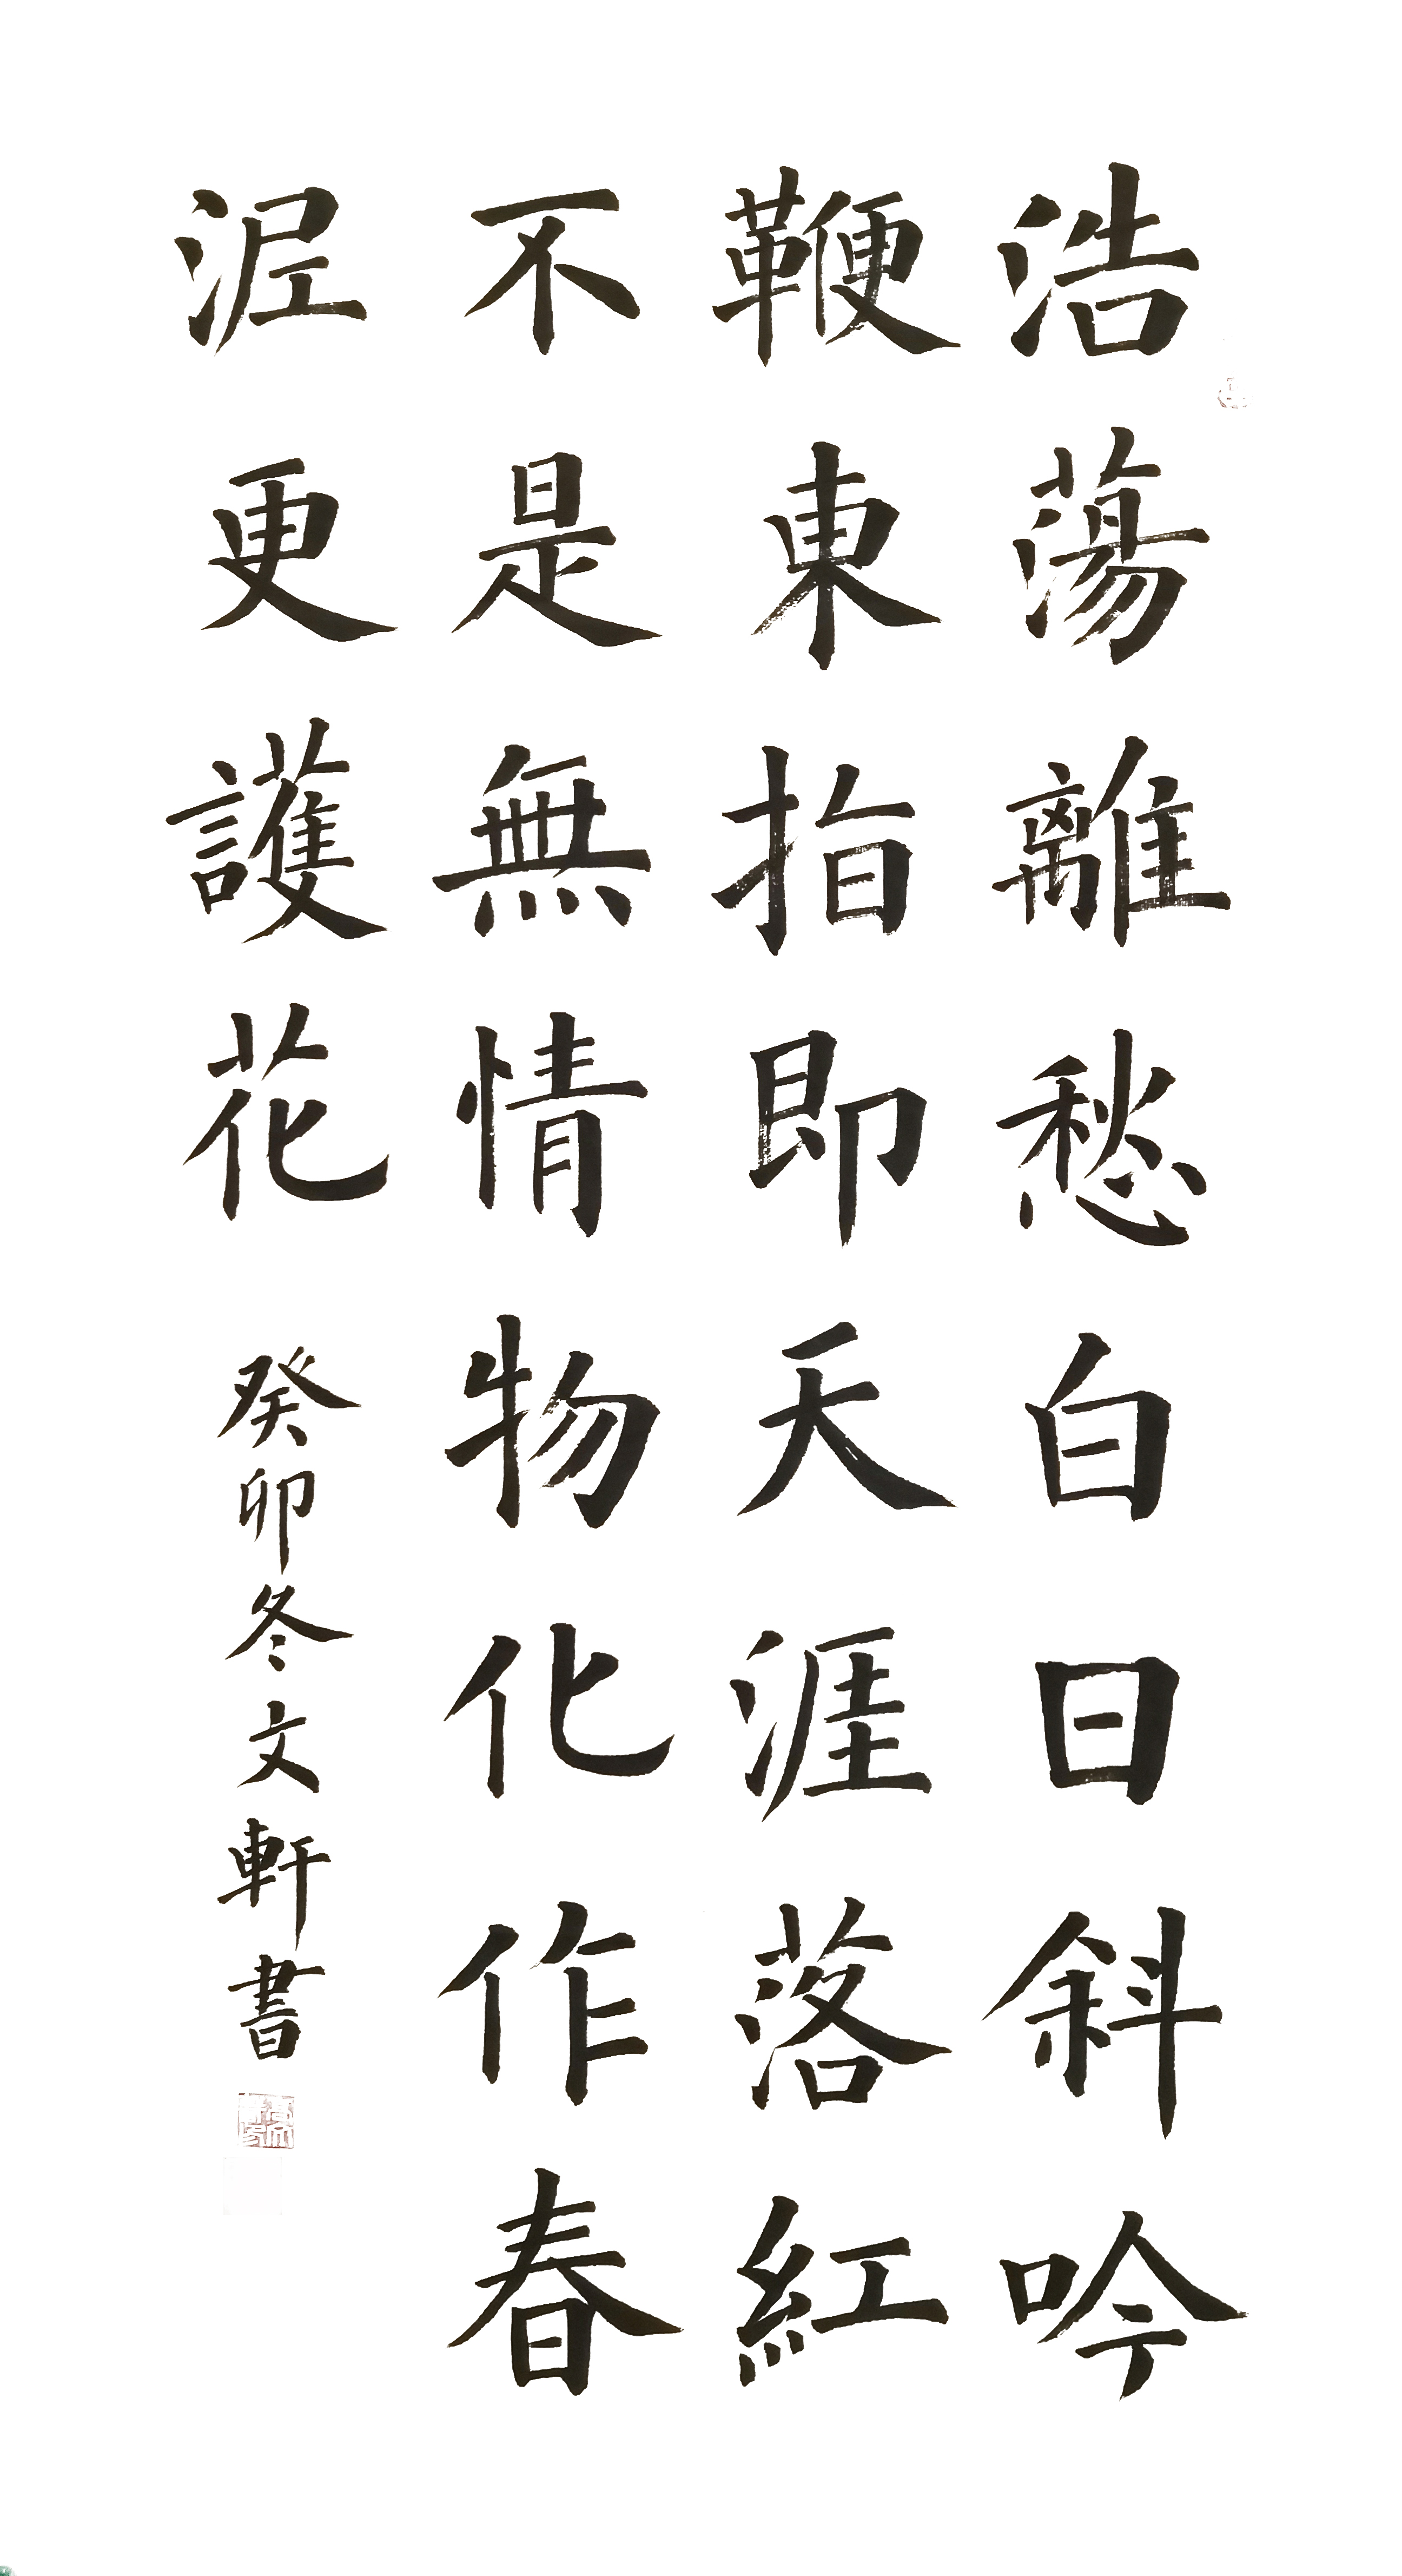 浩蕩離愁白日斜吟
鞭東指即天涯落紅
不是無情物化作春
泥更護花
癸卯冬文軒書